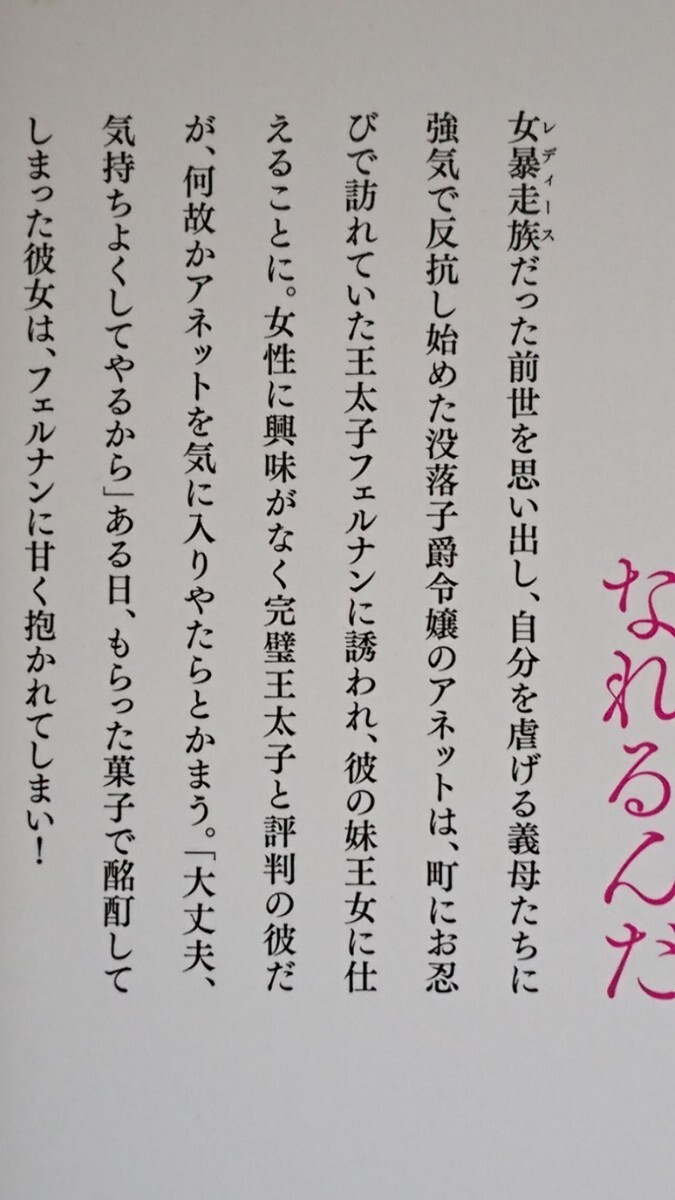 なれるんだ
女暴走族だった前世を思い出し、自分を虐げる義母たちに
レディース
強気で反抗し始めた没落子爵令嬢のアネットは、町にお忍
びで訪れていた王太子フェルナンに誘われ、彼の妹王女に仕
えることに。女性に興味がなく完璧王太子と評判の彼だ
が、何故かアネットを気に入りやたらとかまう。「大丈夫、
気持ちよくしてやるから」ある日、もらった菓子で酩酊して
しまった彼女は、フェルナンに甘く抱かれてしまい！